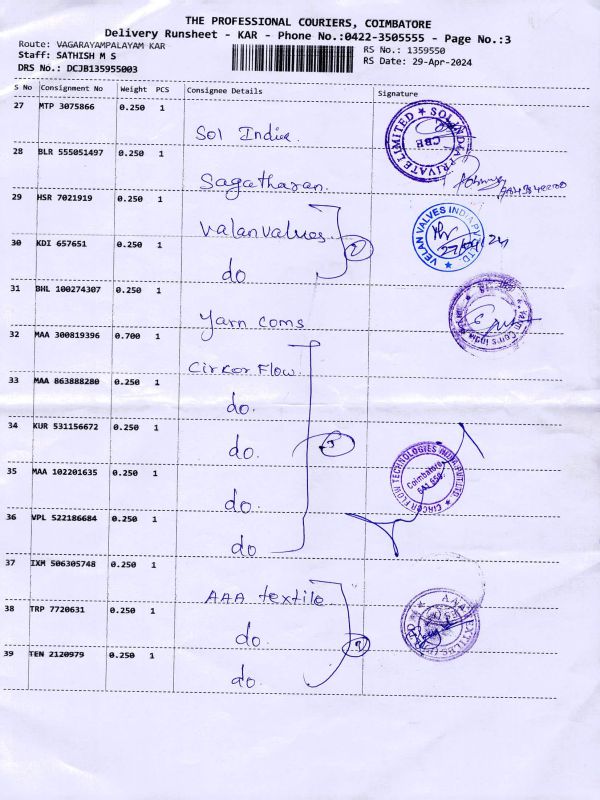 THE PROFESSIONAL COURIERS, COIMBATORE
Delivery Runsheet - KAR - Phone No.:0422-3505555 - Page No.:3
Route: VAGARAYAMPALAYAM KAR
RS No.: 1359550
Staff: SATHISH M S
RS Date: 29-Apr-2024
DRS No.: DCJB135955003
S No Consignment No Weight PCS Consignee Details Signature
27 MTP 3075866 0.250 1
Sol India
SOL INDIA PRIVATE LIMITED ★ CBE
28 BLR 555051497 0.250 1
Sagatharan.
29 HSR 7021919 0.250 1
Valanvalves.
VELAN VALVES INDIA PVT. LTD. ★
30 KDI 657651 0.250 1
do
31 BHL 100274307 0.250 1
Yarn coms
32 MAA 300819396 0.700 1
Circor Flow.
33 MAA 863888280 0.250 1
do.
34 KUR 531156672 0.250 1
do.
35 MAA 102201635 0.250 1
do.
CIRCOR FLOW TECHNOLOGIES INDIA PVT LTD ★
Coimbatore
641 658.
36 VPL 522186684 0.250 1
do
37 IXM 506305748 0.250 1
AAA textile
38 TRP 7720631 0.250 1
do.
39 TEN 2120979 0.250 1
do.